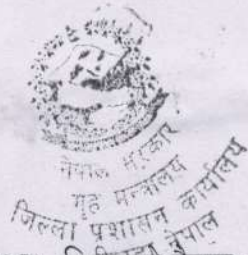 नेपाल सरकार
गृह मन्त्रालय
जिल्ला प्रशासन कार्यालय
नेपाल